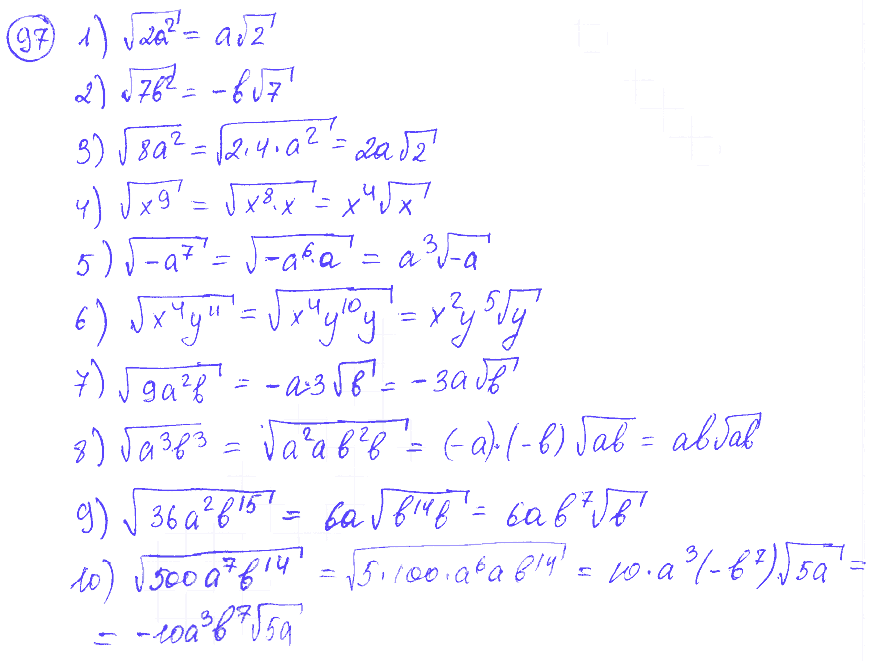 97 1) √(2a²) = a√2
2) √(7в²) = -в√7
3) √(8a²) = √(2·4·a²) = 2a√2
4) √(x⁹) = √(x⁸·x) = x⁴√x
5) √(-a⁷) = √(-a⁶·a) = a³√(-a)
6) √(x⁴y¹¹) = √(x⁴y¹⁰y) = x²y⁵√y
7) √(9a²в) = -a·3√в = -3a√в
8) √(a³в³) = √(a²aв²в) = (-a)·(-в)√(aв) = aв√(aв)
9) √(36a²в¹⁵) = 6a√(в¹⁴в) = 6aв⁷√в
10) √(500a⁷в¹⁴) = √(5·100·a⁶aв¹⁴) = 10·a³(-в⁷)√(5a) =
= -10a³в⁷√(5a)